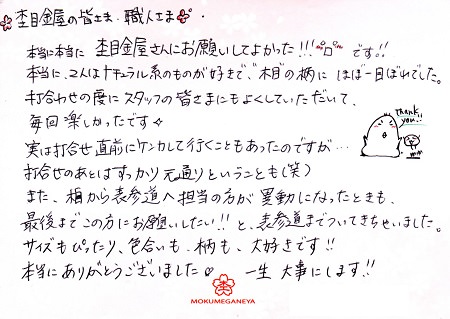 杢目金屋の皆さま・職人さま
本当に本当に 杢目金屋さんにお願いしてよかった!!! です!!
本当に、2人はナチュラル系のものが好きで、木目の柄に ほぼ一目ぼれでした。
打合わせの度にスタッフの皆さまにもよくしていただいて、
毎回楽しかったです
Thank you!!
実は打合せ直前にケンカして行くこともあったのですが…
打合せのあとはすっかり元通りということも(笑)
また、柏から表参道へ担当の方が異動になったときも、
最後までこの方にお願いしたい!!と、表参道までついてきちゃいました。
サイズもぴったり、色合いも、柄も、大好きです!!
本当にありがとうございました 一生大事にします!!
MOKUMEGANEYA